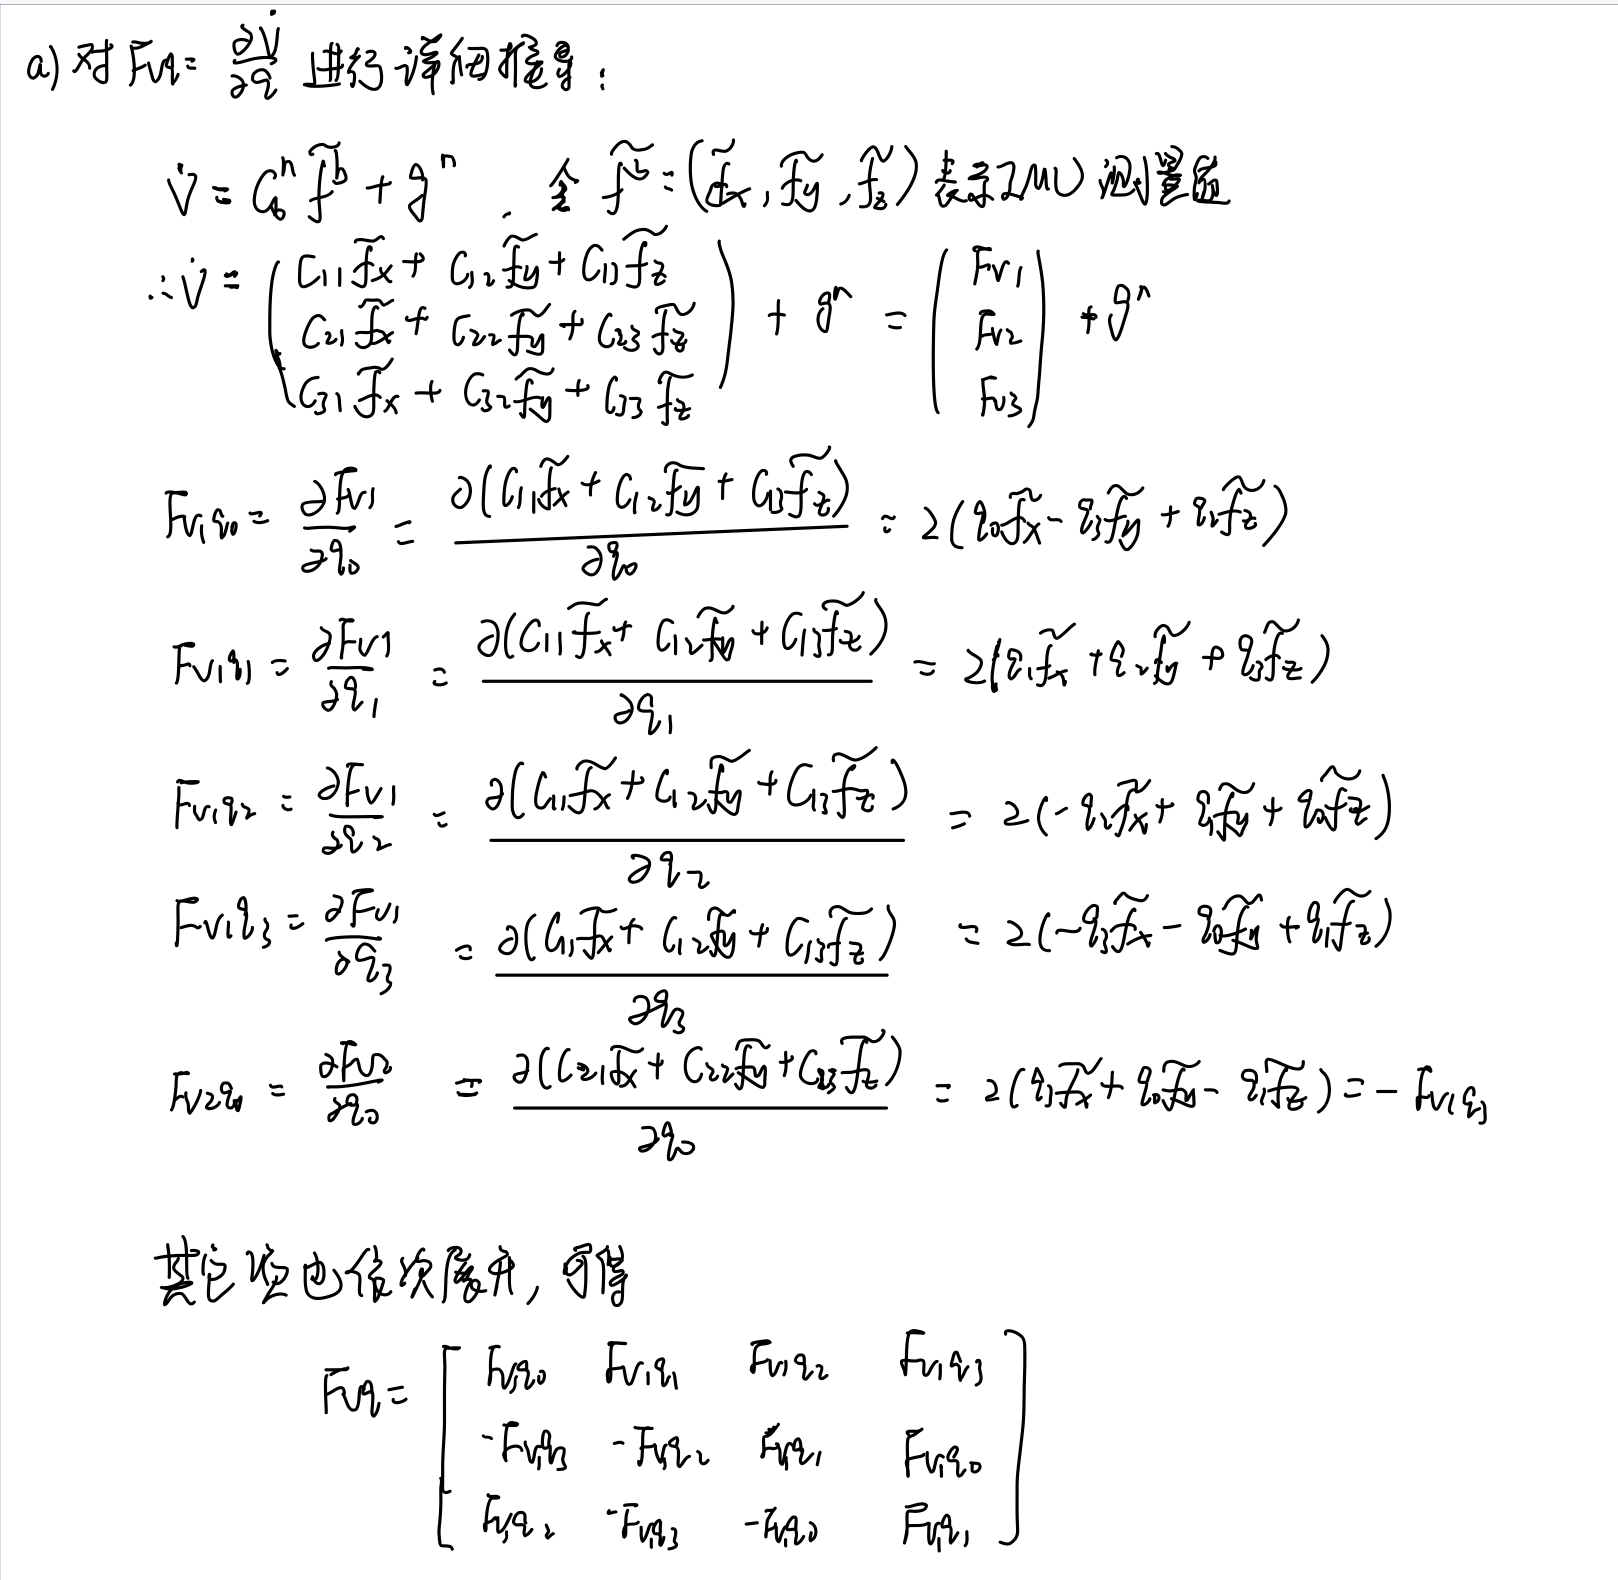 a) 对 Fvq = ∂V̇/∂q 进行详细推导:
V̇ = C_b^n f̃^b + g^n . 令 f̃^b = (f̃x, f̃y, f̃z) 表示IMU测量值
∴ V̇ = ( C11 f̃x + C12 f̃y + C13 f̃z ; C21 f̃x + C22 f̃y + C23 f̃z ; C31 f̃x + C32 f̃y + C33 f̃z ) + g^n = ( Fv1 ; Fv2 ; Fv3 ) + g^n
Fv1q0 = ∂Fv1/∂q0 = ∂(C11 f̃x + C12 f̃y + C13 f̃z)/∂q0 = 2(q0 f̃x - q3 f̃y + q2 f̃z)
Fv1q1 = ∂Fv1/∂q1 = ∂(C11 f̃x + C12 f̃y + C13 f̃z)/∂q1 = 2(q1 f̃x + q2 f̃y + q3 f̃z)
Fv1q2 = ∂Fv1/∂q2 = ∂(C11 f̃x + C12 f̃y + C13 f̃z)/∂q2 = 2(-q2 f̃x + q1 f̃y + q0 f̃z)
Fv1q3 = ∂Fv1/∂q3 = ∂(C11 f̃x + C12 f̃y + C13 f̃z)/∂q3 = 2(-q3 f̃x - q0 f̃y + q1 f̃z)
Fv2q0 = ∂Fv2/∂q0 = ∂(C21 f̃x + C22 f̃y + C23 f̃z)/∂q0 = 2(q3 f̃x + q0 f̃y - q1 f̃z) = - Fv1q3
其它项也依次展开, 可得
Fvq = [ Fv1q0 Fv1q1 Fv1q2 Fv1q3
-Fv1q3 -Fv1q2 Fv1q1 Fv1q0
Fv1q2 -Fv1q3 -Fv1q0 Fv1q1 ]